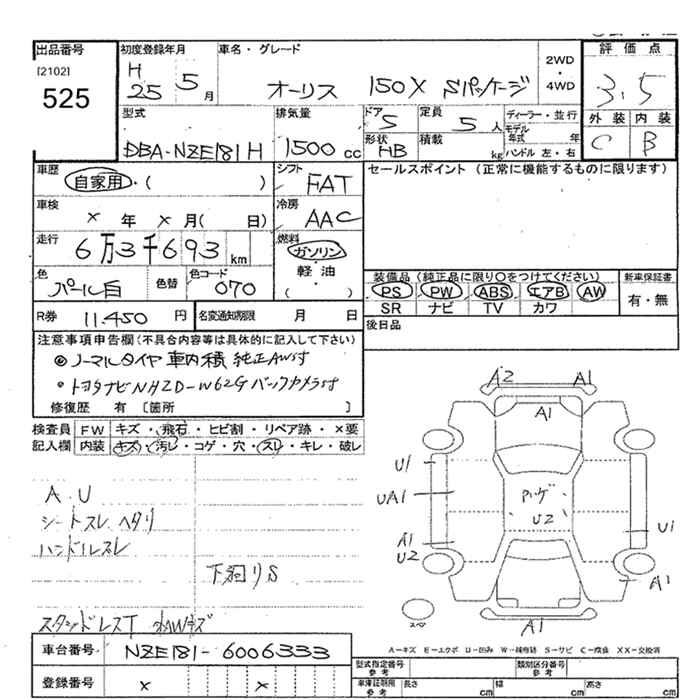 出品番号
[2102]
525
初度登録年月
H 25 5月
車名・グレード
オーリス 150X Sパッケージ
2WD
・
4WD
評価点
3.5
外装 内装
C B
型式
DBA-NZE181H
排気量
1500 cc
ドア
5
定員
5 人
形状
HB
積載
kg
ディーラー・並行
モデル年式 年
ハンドル 左・右
車歴
自家用・( )
シフト
FAT
セールスポイント (正常に機能するものに限ります)
車検
× 年 × 月( 日)
冷房
AAC
走行
6万3千693 km
燃料
ガソリン
軽油
( )
色
パール白
色替
色コード
070
装備品 (純正品に限り○をつけてください)
PS PW ABS エアB AW
SR ナビ TV カワ
新車保証書
有・無
R券 11.450 円
名変通知期限 月 日
後日品
注意事項申告欄(不具合内容等は具体的に記入して下さい)
◎ノーマルタイヤ 車内積 純正AW付
・トヨタナビNHZD-W62G バックカメラ付
修復歴 有 [箇所 ]
検査員記入欄
FW キズ・飛石・ヒビ割・リペア跡・×要
内装 キズ・汚レ・コゲ・穴・スレ・キレ・破レ
A.U
シートスレ ヘタリ
ハンドルスレ
下廻りS
A2 A1
A1
U1
UA1
U2
U1
A1
U2
A1
A1
スペア
A-キズ E-エクボ U-凹み W-補修跡 S-サビ C-腐食 XX-交換済
車台番号 NZE181-6006333
登録番号 × ×
型式指定番号
参考
類別区分番号
参考
車庫証明用
参考
長さ cm
幅 cm
高さ cm